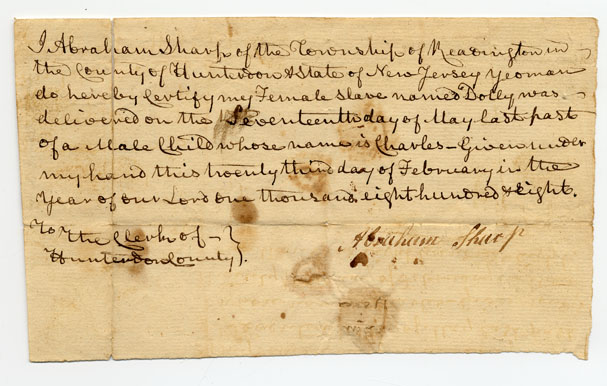 I Abraham Sharp of the Township of Readington in
the County of Hunterdon & State of New Jersey Yeoman
do hereby Certify my Female Slave named Dolly was
delivered on the Seventeenth day of May last past
of a Male Child whose name is Charles - Given under
my hand this twenty third day of February in the
Year of our Lord one thousand eight hundred & Eight.
To
The Clerk of
Hunterdon County).
Abraham Sharp